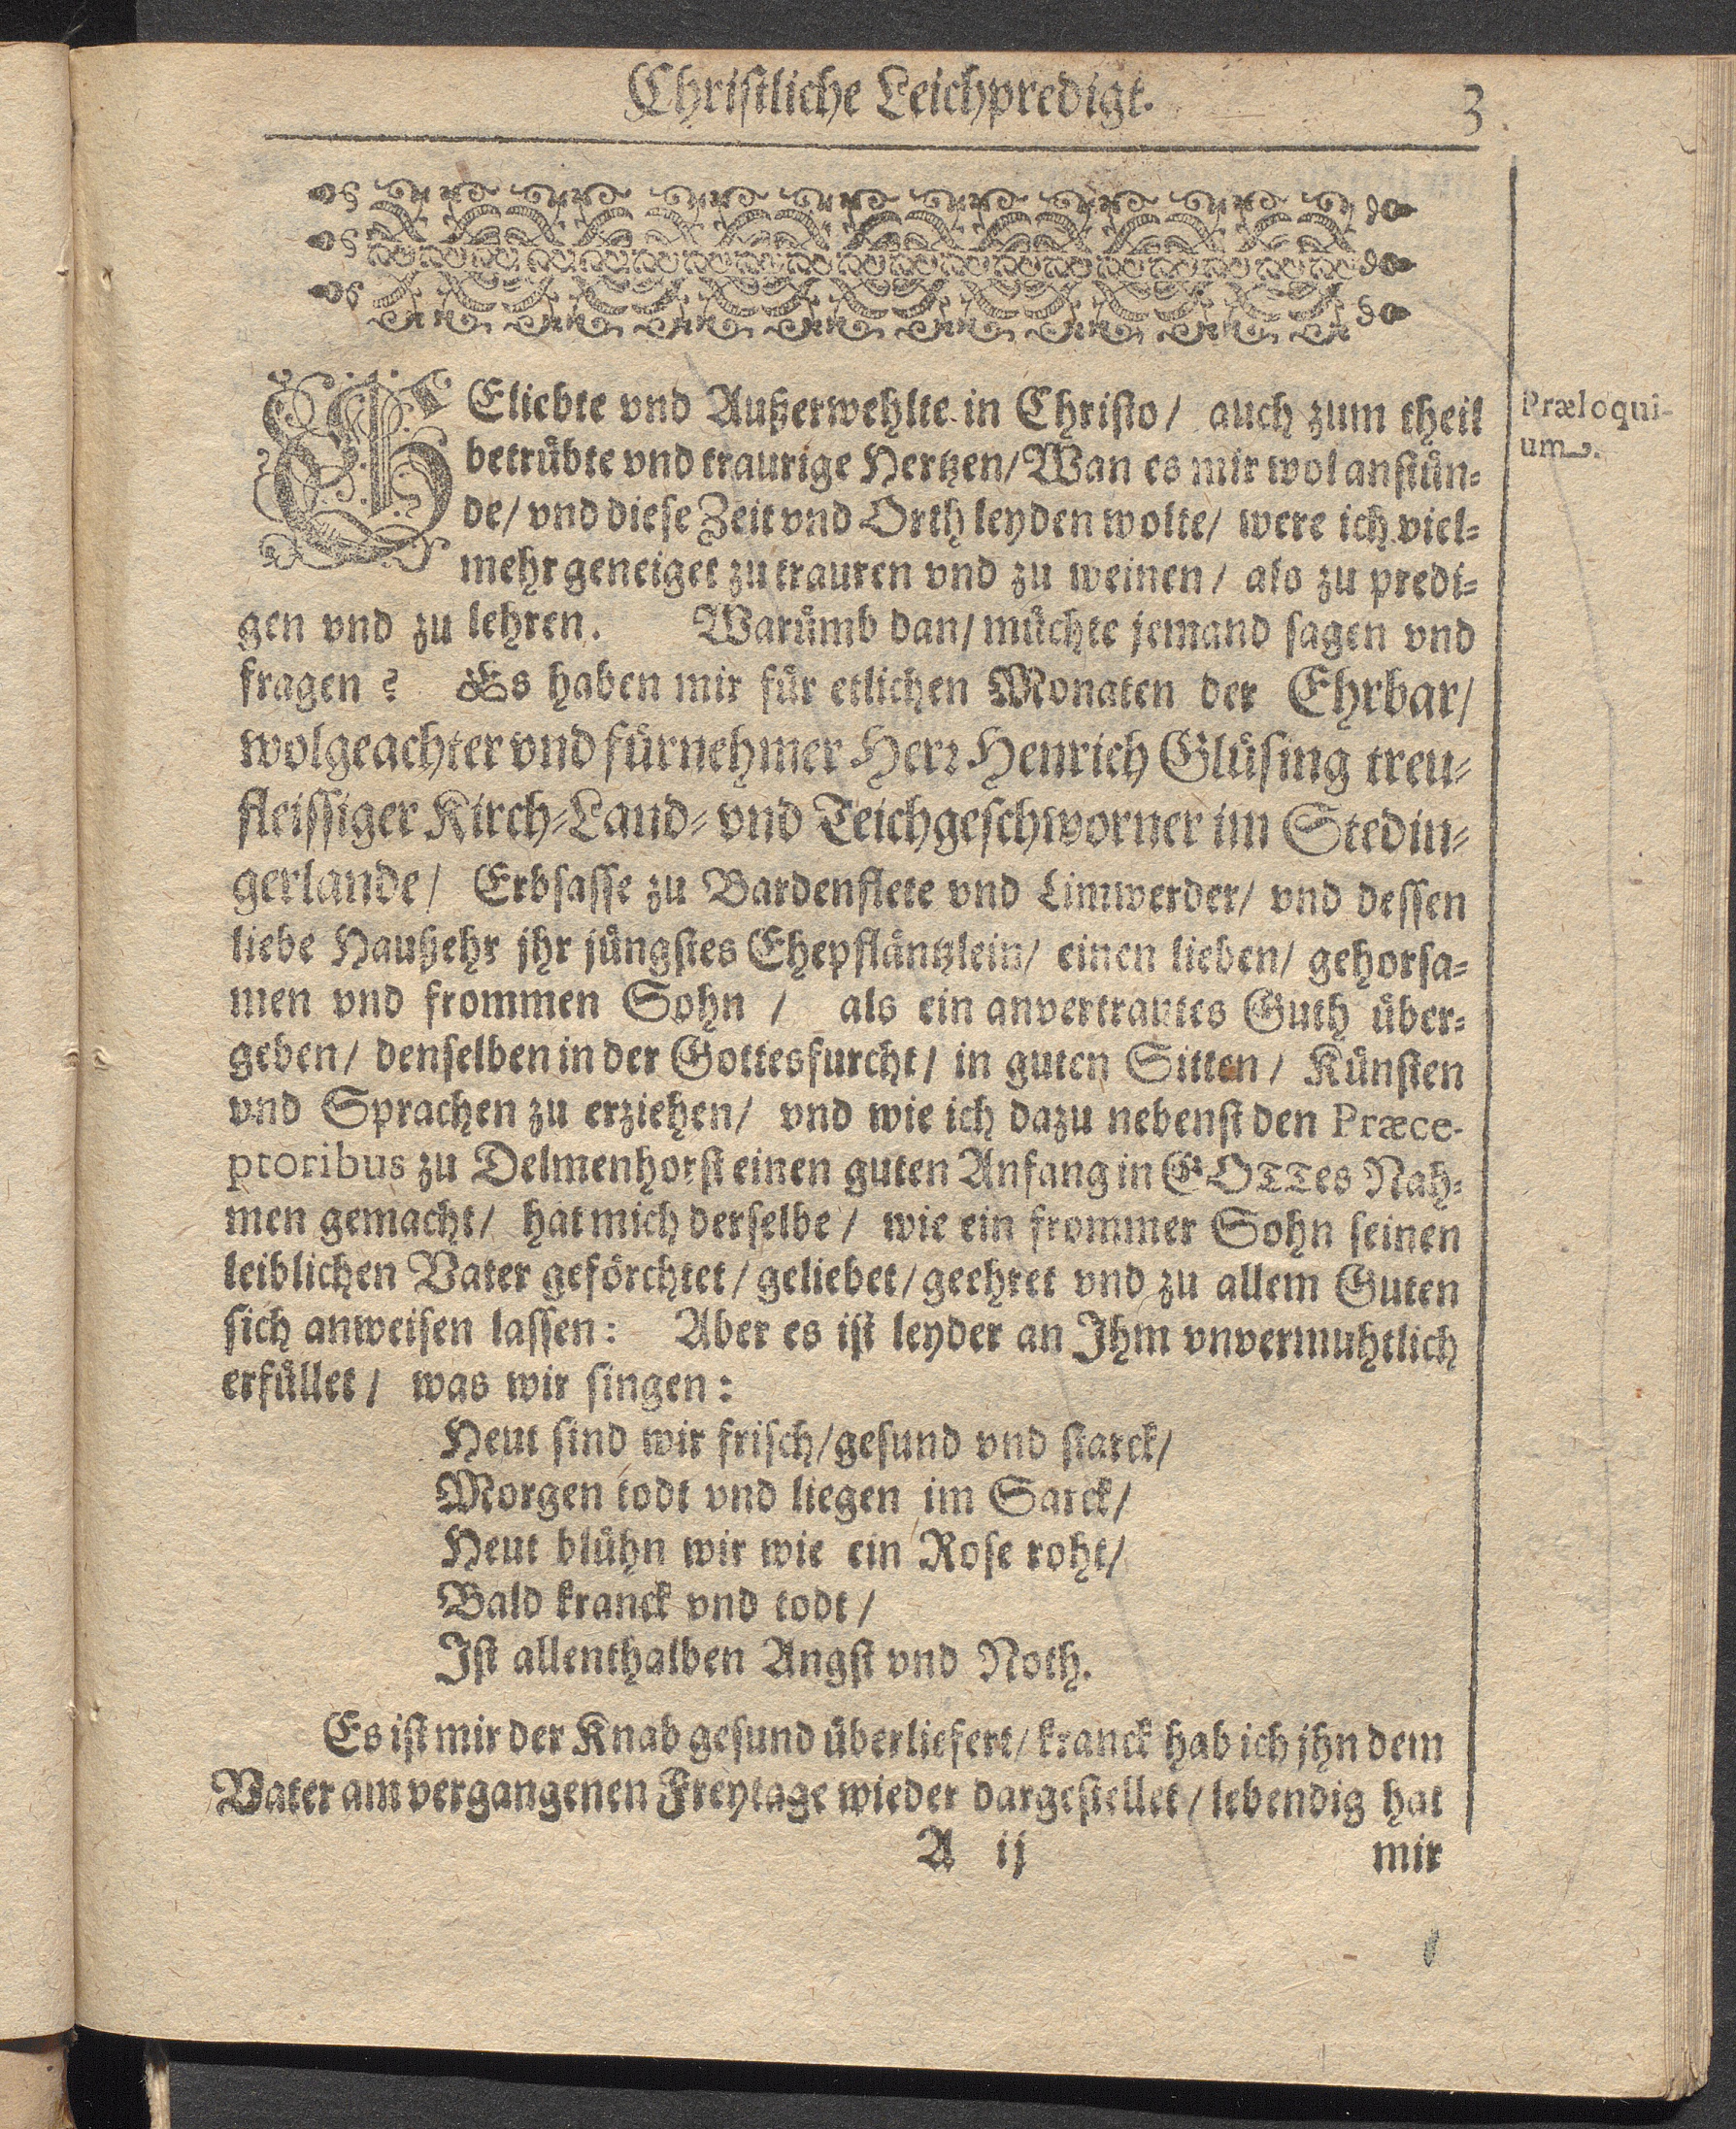 Christliche Leichpredigt. 3
GEliebte vnd Außerwehlte in Christo/ auch zum theil
Præloqui-
betrübte vnd traurige Hertzen/ Wan es mir wol anstün-
um.
de/ vnd diese Zeit vnd Orth leyden wolte/ were ich viel-
mehr geneiget zu trauren vnd zu weinen/ als zu predi-
gen vnd zu lehren. Warümb dan/ müchte jemand sagen vnd
fragen? Es haben mir für etlichen Monaten der Ehrbar/
wolgeachter vnd fürnehmer Herr Henrich Glüsing treu-
fleissiger Kirch-Land- vnd Teichgeschworner im Stedin-
gerlande/ Erbsasse zu Bardenflete vnd Limwerder/ vnd dessen
liebe Haußehr jhr jüngstes Ehepfläntzlein/ einen lieben/ gehorsa-
men vnd frommen Sohn / als ein anvertrautes Guth über-
geben/ denselben in der Gottesfurcht/ in guten Sitten/ Künsten
vnd Sprachen zu erziehen/ vnd wie ich dazu nebenst den Præce-
ptoribus zu Delmenhorst einen guten Anfang in GOTTes Nah-
men gemacht/ hat mich derselbe/ wie ein frommer Sohn seinen
leiblichen Vater geförchtet/ geliebet/ geehret vnd zu allem Guten
sich anweisen lassen: Aber es ist leyder an Jhm vnvermuhtlich
erfüllet/ was wir singen:
Heut sind wir frisch/ gesund vnd starck/
Morgen todt vnd liegen im Sarck/
Heut blühn wir wie ein Rose roht/
Bald kranck vnd todt/
Jst allenthalben Angst vnd Noth.
Es ist mir der Knab gesund überliefert/ kranck hab ich jhn dem
Vater am vergangenen Freytage wieder dargestellet/ lebendig hat
A ij mir